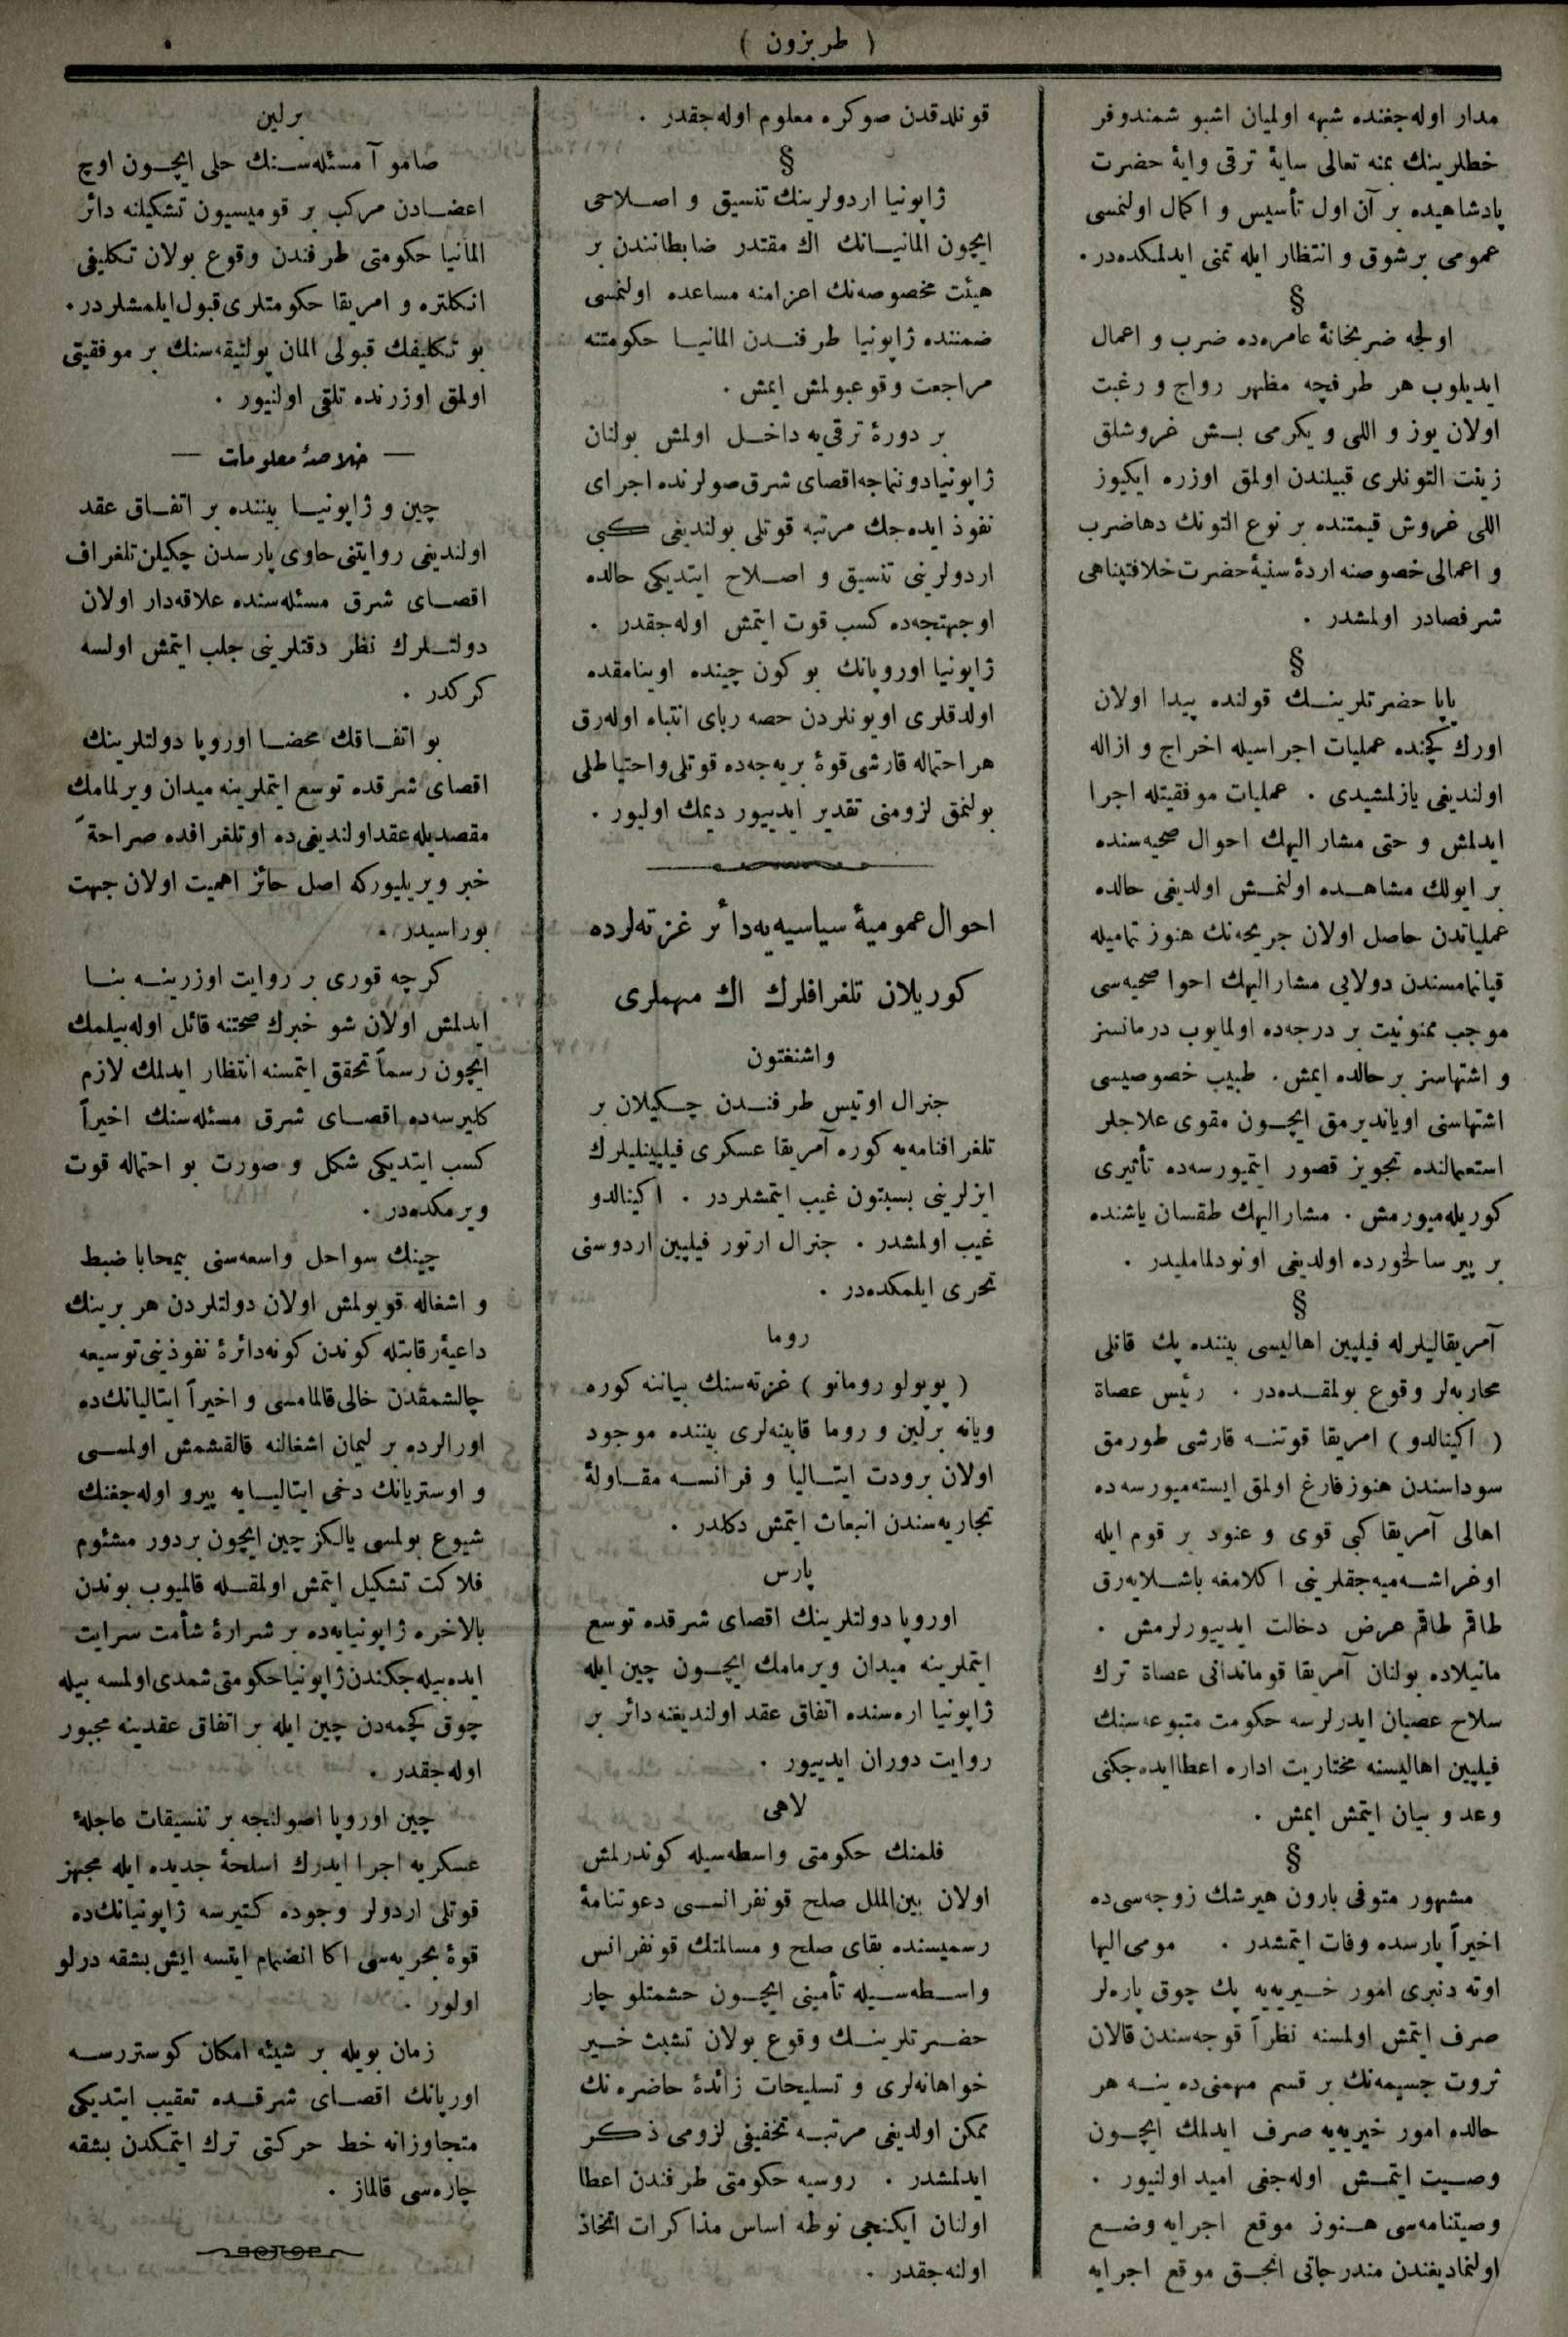 ( طربزون )
مدار اوله‌جغنده شبهه اولمیان اشبو شمندوفر
خطلرینك بمنه تعالی سایهٔ ترقی وایهٔ حضرت
پادشاهیده بر آن اول تأسیس و اكمال اولنمسی
عمومی برشوق و انتظار ایله تمنی ایدلمكده‌در .
§
اولجه ضربخانهٔ عامره‌ده ضرب و اعمال
ایدیلوب هر طرفجه مظهر رواج و رغبت
اولان یوز و اللی و یكرمی بـش غروشلق
زینت التونلری قبیلندن اولمق اوزره ایكیوز
اللی غروش قیمتنده بر نوع التونك دهاضرب
و اعمالی خصوصنه اردهٔ سنیهٔ حضرت خلافتپناهی
شرفصادر اولمشدر .
§
پاپا حضرتلرینـك قولنده پیدا اولان
اورك كچنده عملیات اجراسیله اخراج و ازاله
اولندیغی یازلمشیدی . عملیات موفقیتله اجرا
ایدلمش و حتی مشار الیهك احوال صحیه‌سنده
بر ایولك مشاهـده اولنمـش اولدیغی حالده
عملیاتدن حاصل اولان جریحه‌نك هنوز تمامیله
قپانمامسندن دولایی مشارالیهك احوا صحیه‌سی
موجب ممنونیت بر درجه‌ده اولمایوب درمانسز
و اشتهاسز برحالده ایمش . طبیب خصوصیسی
اشتهاسنی اویاندیرمق ایچـون مقوی علاجلر
استعمالنده تجویز قصور ایتمیورسه‌ده تأثیری
كوریله‌میورمش . مشارالیهك طقسان یاشنده
بر پیر سالخورده اولدیغی اونودلمامليدر .
§
آمریقالیلرله فیلیپین اهالیسی بیننده پك قانلی
محاربه‌لر وقوع بولمقـده‌در . رئیس عصاة
( اكینالدو ) امریقا قوتنـه قارشی طورمق
سوداسندن هنوز فارغ اولمق ایسته‌میورسه‌ده
اهالی آمریقا كبی قوی و عنود بر قوم ایله
اوغراشـه‌میه‌جقلرینی اكلامغه باشـلایه‌رق
طاقم طاقم عرض دخالت ایدییورلرمش .
مانیلاده بولنان آمریقا قوماندانی عصاة ترك
سلاح عصیان ایدرلرسه حكومت متبوعه‌سنك
فیلیپین اهالیسنه مختاریت اداره اعطاایده‌جكنی
وعد و بیان ایتمش ایمش .
§
مشهور متوفی بارون هیرشك زوجه‌سی‌ده
اخیراً پارسده وفات ایتمشدر . مومی‌الیها
اوته دنبری امور خـیریه‌یه پك چوق پاره‌لر
صرف ایتمش اولمسنه نظراً قوجه‌سندن قالان
ثروت جسیمه‌نك بر قسم مهمنی‌ده ینـه هر
حالده امور خیریه‌یه صرف ایدلمك ایچـون
وصـیت ایتمـش اوله‌جغی امید اولنیور .
وصیتنامه‌سی هـنوز موقع اجرایه وضـع
اولنمادیغندن مندرجاتی انجـق موقع اجرایه
قونلدقدن صوكره معلوم اوله‌جقدر .
§
ژاپونیا اردولرینك تنسیق و اصـلاحی
ایچون المانیـانك اك مقتدر ضابطانندن بر
هیئت مخصوصه‌نك اعزامنه مساعده اولنمسی
ضمننده ژاپونیا طرفنـدن المانیـا حكومتنه
مراجعت وقوعبولمش ایمش .
بر دورهٔ ترقی‌یه داخـل اولمش بولنان
ژاپونیادوننماجه‌اقصای شرق صولرنده اجرای
نفوذ ایده‌جك مرتبه قوتلی بولندیغی كبی
اردولرینی تنسیق و اصـلاح ایتدیكی حالده
اوجهتجه‌ده كسب قوت ایتمش اوله‌جقدر .
ژاپونیا اوروپانك بوكون چینده اوینامقده
اولدقلری اویونلردن حصه ربای انتباه اوله‌رق
هراحتماله قارشی قوهٔ بریه‌جه‌ده قوتلی واحتیاطلی
بولنمق لزومنی تقدیر ایدییور دیمك اولیور .
احوال عمومیهٔ سیاسیه‌یه‌دائر غزته‌لرده
كوریلان تلغرافلرك اك مهملری
واشنغتون
جنرال اوتیس طرفنـدن چـكیلان بر
تلغرافنامه‌یه كوره آمریقا عسكری فیلیپینلیلرك
ایزلرینی بسبتون غیب ایتمشلردر . اكینالدو
غیب اولمشدر . جنرال ارتور فیلیپین اردوسنی
تحری ایلمكده‌در .
روما
( پوپولو رومانو ) غزته‌سنك بیاننه كوره
ویانه برلین و روما قابینه‌لری بیننده موجود
اولان برودت ایتـالیا و فرانسـه مقـاولهٔ
تجاریه‌سندن انبعاث ایتمش دكلدر .
پارس
اوروپا دولتلرینك اقصای شرقده توسع
ایتملرینه میدان ویرمامك ایچـون چین ایله
ژاپونیا اره‌سنده اتفاق عقد اولندیغنه دائر بر
روایت دوران ایدییور .
لاهی
فلمنك حكومتی واسطه‌سیله كوندرلمش
اولان بین‌الملل صلح قونفرانسی دعوتنامهٔ
رسمیسنده بقای صلح و مسالمتك قونفرانس
واسـطه‌سـیله تأمینی ایچـون حشمتلو چار
حضـرتلرینـك وقوع بولان تشبث خـیر
خواهانه‌لری و تسلیحات زائدهٔ حاضره‌نك
ممكن اولدیغی مرتبـه تخفیفی لزومی ذكر
ایدلمشدر . روسیه حكومتی طرفندن اعطا
اولنان ایكنجی نوطه اساس مذاكرات اتخاذ
اولنه‌جقدر .
برلین
صامو آ مسئله‌سـنك حلی ایچـون اوچ
اعضـادن مركب بر قومیسیون تشكیلنه دائر
المانیا حكومتی طرفندن وقوع بولان تكلیفی
انكلتره و امریقا حكومتلری قبول ایلمشلردر .
بو تكلیفك قبولی المان پولتیقه‌سنك بر موفقیتی
اولمق اوزرنده تلقی اولنیور .
— خلاصهٔ معلومات —
چین و ژاپونیـا بیننده بر اتفـاق عقد
اولندیغی روایتنی حاوی پارسدن چكیلن تلغراف
اقصـای شرق مسئله‌سنده علاقه‌دار اولان
دولتـلرك نظر دقتلرینی جلب ایتمش اولسه
كركدر .
بو اتفـاقك محضـا اوروپا دولتلرینك
اقصای شرقده توسع ایتملرینه میدان ویرلمامك
مقصدیله عقد اولندیغی‌ده اوتلغرافده صراحةً
خبر ویریلیوركه اصل حائز اهمیت اولان جهت
بوراسیدر .
كرچه قوری بر روایت اوزرینـه بنـا
ایدلمش اولان شو خبرك صحتنه قائل اوله‌بیلمك
ایچون رسماً تحقق ایتمسنه انتظار ایدلمك لازم
كلیرسه‌ده اقصـای شرق مسئله‌سنك اخیراً
كسب ایتدیكی شكل و صورت بو احتماله قوت
ویرمكده‌در .
چینك سواحل واسعه‌سنی بیمحابا ضبط
و اشغاله قویولمش اولان دولتلردن هر برینك
داعیهٔ رقابتله كوندن كونه‌دائرهٔ نفوذینی توسیعه
چالشمقدن خالی قالمامسی و اخیراً ایتالیانك‌ده
اورالرده بر لیمان اشغالنه قالقشمش اولمـسی
و اوستریانك دخی ایتالیـایه پیرو اوله‌جغنك
شیوع بولمسی یالكز چین ایچون بر دور مشئوم
فلاكت تشكیل ایتمش اولمقـله قالمیوب بوندن
بالاخره ژاپونیایه‌ده بر شرارهٔ شأمت سرایت
ایده‌بیله‌جكندن ژاپونیاحكومتی شمدی‌اولمسه بیله
چوق كچمه‌دن چین ایله بر اتفاق عقدینه مجبور
اوله‌جقدر .
چین اوروپا اصولنجه بر تنسیقات عاجلهٔ
عسكریه اجرا ایدرك اسلحهٔ جدیده ایله مجهز
قوتلی اردولر وجوده كتیرسه ژاپونیانك‌ده
قوهٔ بحریه‌سی اكا انضمام ایتسه ایش بشقه درلو
اولور .
زمان بویله بر شیئه امكان كوستررسـه
اورپانك اقصـای شرقـده تعقیب ایتدیكی
متجاوزانه خط حركتی ترك ایتمكدن بشقه
چاره‌سی قالماز .